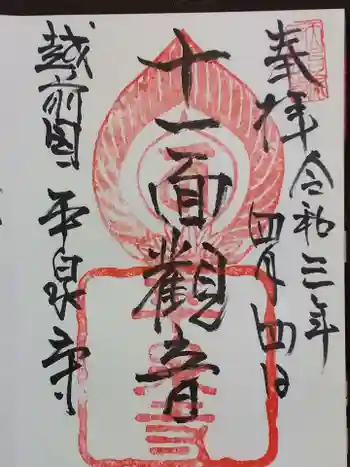 奉拝
令和三年
四月四日
十一面觀音
越前国 平泉寺